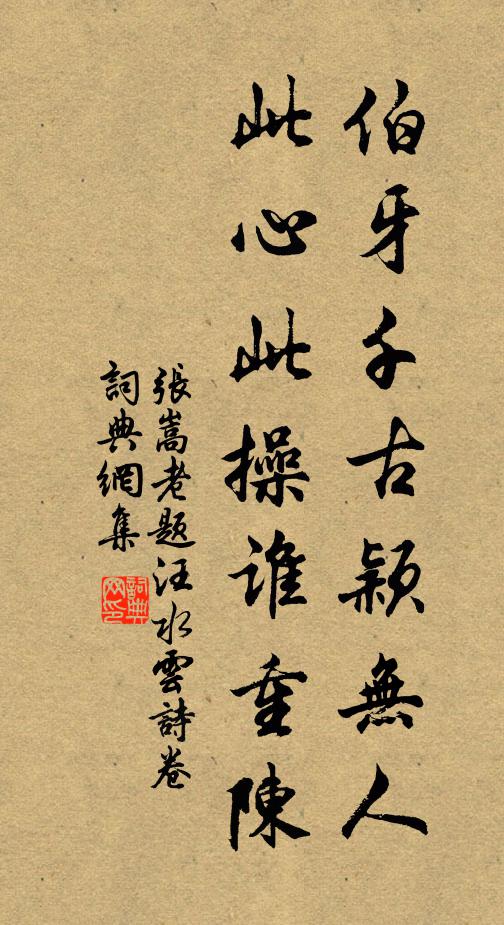 伯牙千古穎無人
此心此操誰重陳
張嵩老題汪水雲詩卷
詞典網集
詞典網印